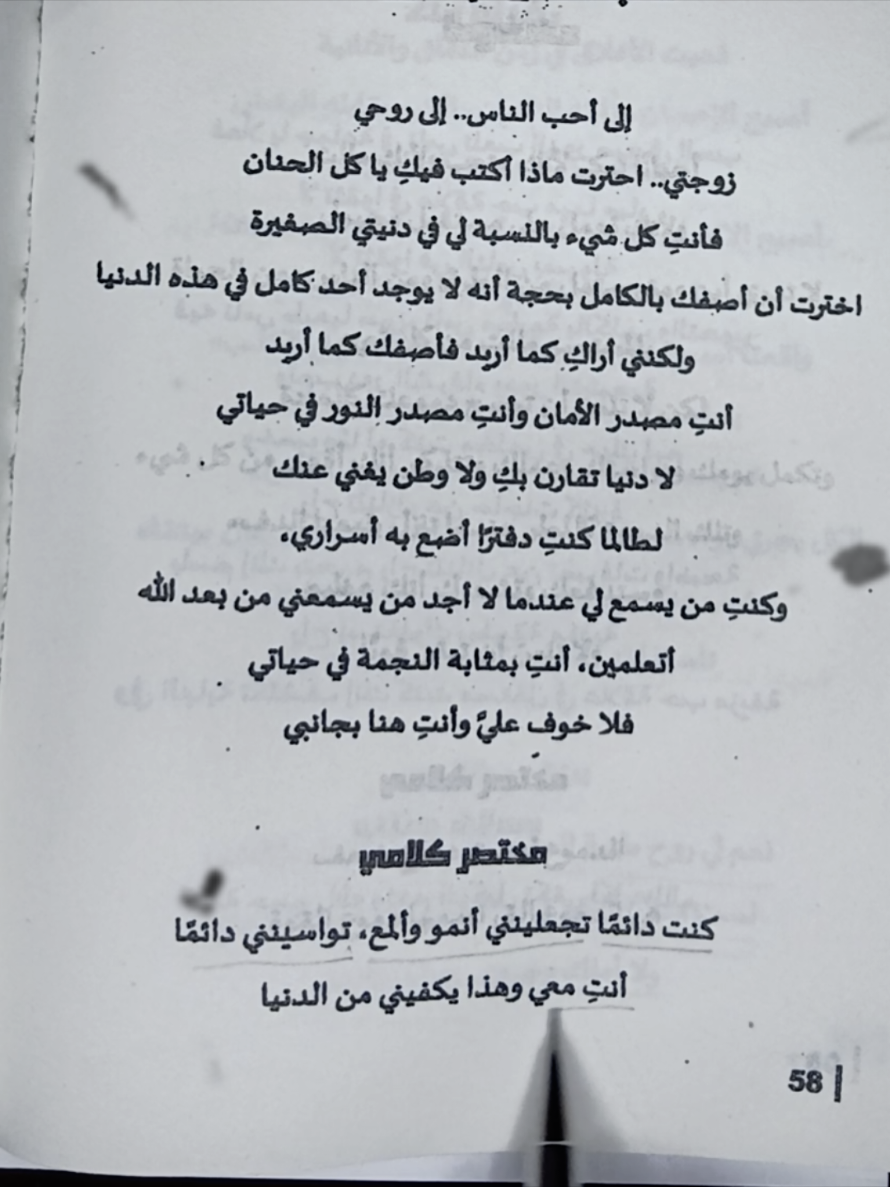 إلى أحب الناس.. إلى روحي
زوجتي.. احترت ماذا أكتب فيكِ يا كل الحنان
فأنتِ كل شيء بالنسبة لي في دنيتي الصغيرة
اخترت أن أصفك بالكامل بحجة أنه لا يوجد أحد كامل في هذه الدنيا
ولكنني أراكِ كما أريد فأصفك كما أريد
أنتِ مصدر الأمان وأنتِ مصدر النور في حياتي
لا دنيا تقارن بكِ ولا وطن يغني عنك
لطالما كنتِ دفترًا أضع به أسراري،
وكنتِ من يسمع لي عندما لا أجد من يسمعني من بعد الله
أتعلمين، أنتِ بمثابة النجمة في حياتي
فلا خوف عليَّ وأنتِ هنا بجانبي
مختصر كلامي
كنت دائمًا تجعلينني أنمو وألمع، تواسينني دائمًا
أنتِ معي وهذا يكفيني من الدنيا
58